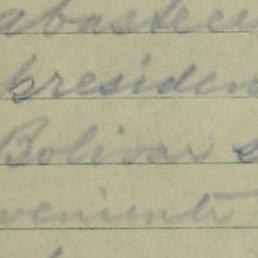 abastecu
presiden
Bolivar s
veniente